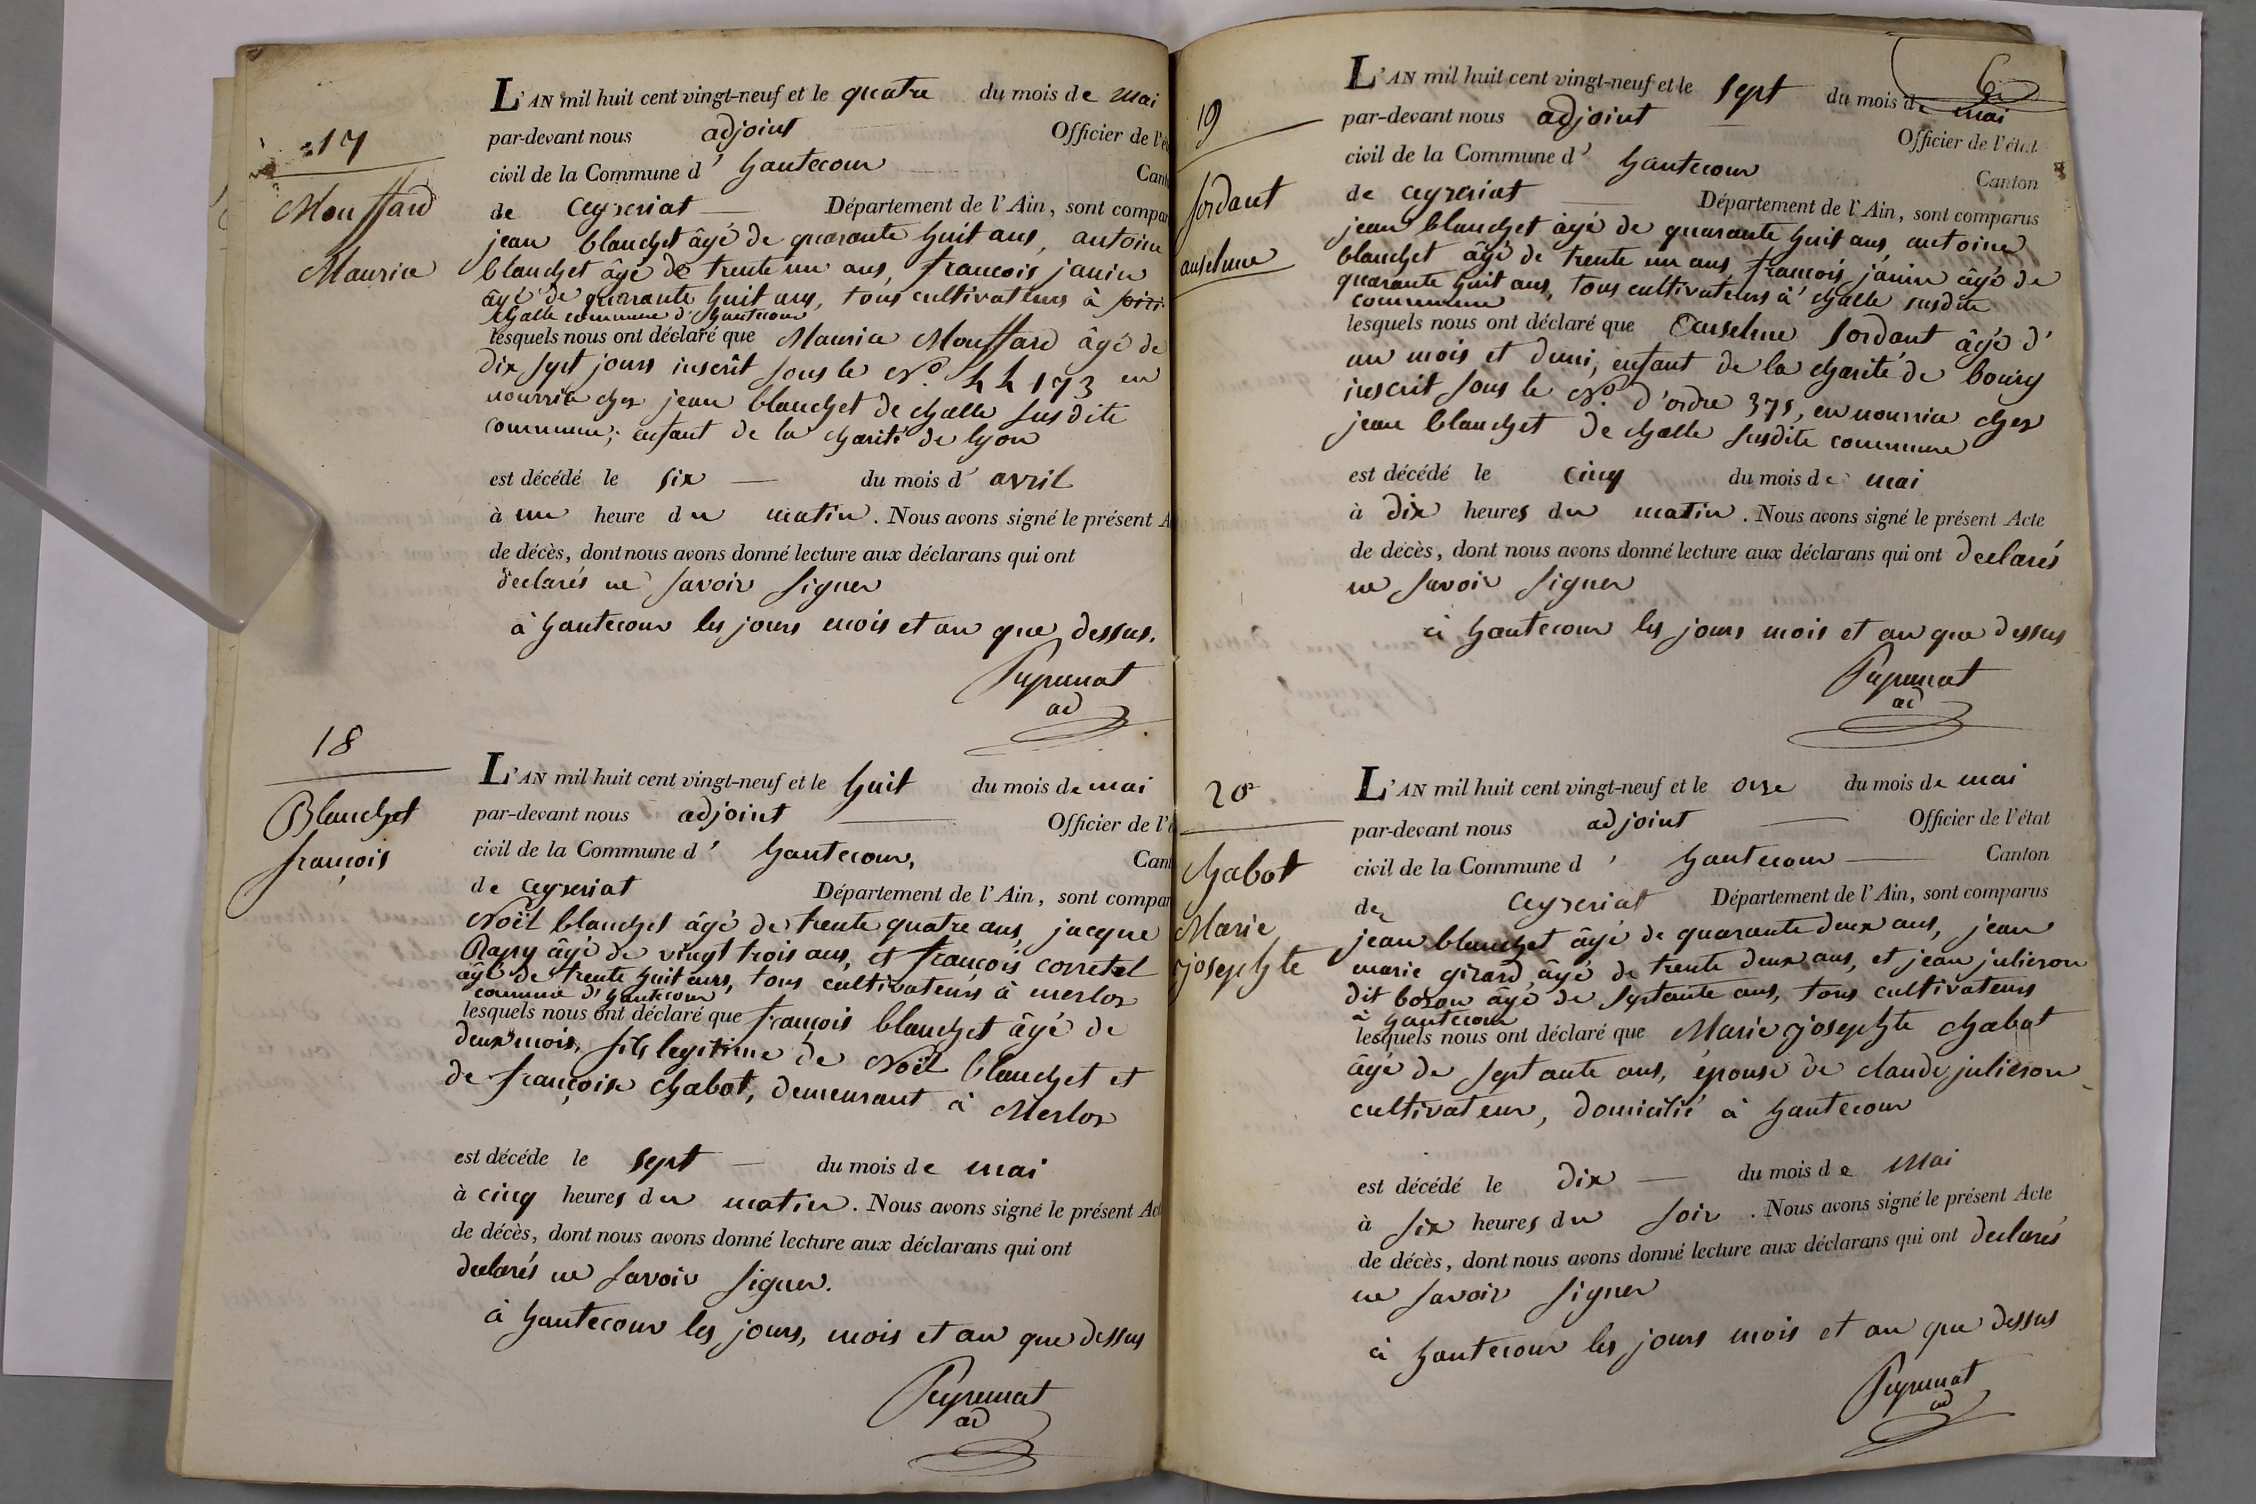 17
Mouffard
Maurice
L'AN mil huit cent vingt-neuf et le quatre du mois de mai
par-devant nous adjoint Officier de l'é
civil de la Commune d' hautecour Cant
de ceyzeriat Département de l'Ain, sont compar
jean blanchet âgé de quarante huit ans, antoine
blanchet âgé de trente un ans, françois janin
âgé de quarante huit ans, tous cultivateurs à
challe commune d'hautecour
lesquels nous ont déclaré que Maurice Mouffard âgé de
dix sept jours inscrit sous le N° 44173 en
nourrice chez jean blanchet de challe susdite
commune; enfant de la charité de lyon
est décédé le six du mois d' avril
à un heure du matin. Nous avons signé le présent A
de décès, dont nous avons donné lecture aux déclarans qui ont
declarés ne savoir signer
à hautecour les jours mois et an que dessus.
ad
18
Blanchet
françois
L'AN mil huit cent vingt-neuf et le huit du mois de mai
par-devant nous adjoint Officier de l'é
civil de la Commune d' hautecour, Cant
de ceyzeriat Département de l'Ain, sont compar
Noël blanchet âgé de trente quatre ans, jacque
âgé de vingt trois ans, et françois corretel
âgé de trente huit ans, tous cultivateurs à merloz
commune d'hautecour
lesquels nous ont déclaré que françois blanchet âgé de
deux mois, fils legitime de Noël blanchet et
de françoise chabot, demeurant à Merloz
est décéde le sept du mois de mai
à cinq heures du matin. Nous avons signé le présent Act
de décès, dont nous avons donné lecture aux déclarans qui ont
declarés ne savoir signer.
à hautecour les jours, mois et an que dessus
ad
6
19
Jordant
anselme
L'AN mil huit cent vingt-neuf et le sept du mois de mai
par-devant nous adjoint Officier de l'état
civil de la Commune d' hautecour Canton
de ceyzeriat Département de l'Ain, sont comparus
jean blanchet âgé de quarante huit ans, antoine
blanchet âgé de trente un ans, françois janin âgé de
quarante huit ans, tous cultivateurs à challe susdite
commune
lesquels nous ont déclaré que anselme Jordant âgé d'
un mois et demi, enfant de la charité de bourg
inscrit sous le N° d'ordre 375, en nourrice chez
jean blanchet de challe susdite commune
est décédé le cinq du mois de mai
à dix heures du matin. Nous avons signé le présent Acte
de décès, dont nous avons donné lecture aux déclarans qui ont declarés
ne savoir signer
à hautecour les jours mois et an que dessus
ad
20
chabot
Marie
josephte
L'AN mil huit cent vingt-neuf et le onze du mois de mai
par-devant nous adjoint Officier de l'état
civil de la Commune d' hautecour Canton
de ceyzeriat Département de l'Ain, sont comparus
jean blanchet âgé de quarante deux ans, jean
marie girard, âgé de trente deux ans, et jean julieron
dit bozon âgé de septante ans, tous cultivateurs
à hautecour
lesquels nous ont déclaré que Marie josephte chabot
âgé de septante ans, épouse de claude julieron
cultivateur, domicilié à hautecour
est décédé le dix du mois de mai
à six heures du soir. Nous avons signé le présent Acte
de décès, dont nous avons donné lecture aux déclarans qui ont declarés
ne savoir signer
à hautecour les jours mois et an que dessus
ad